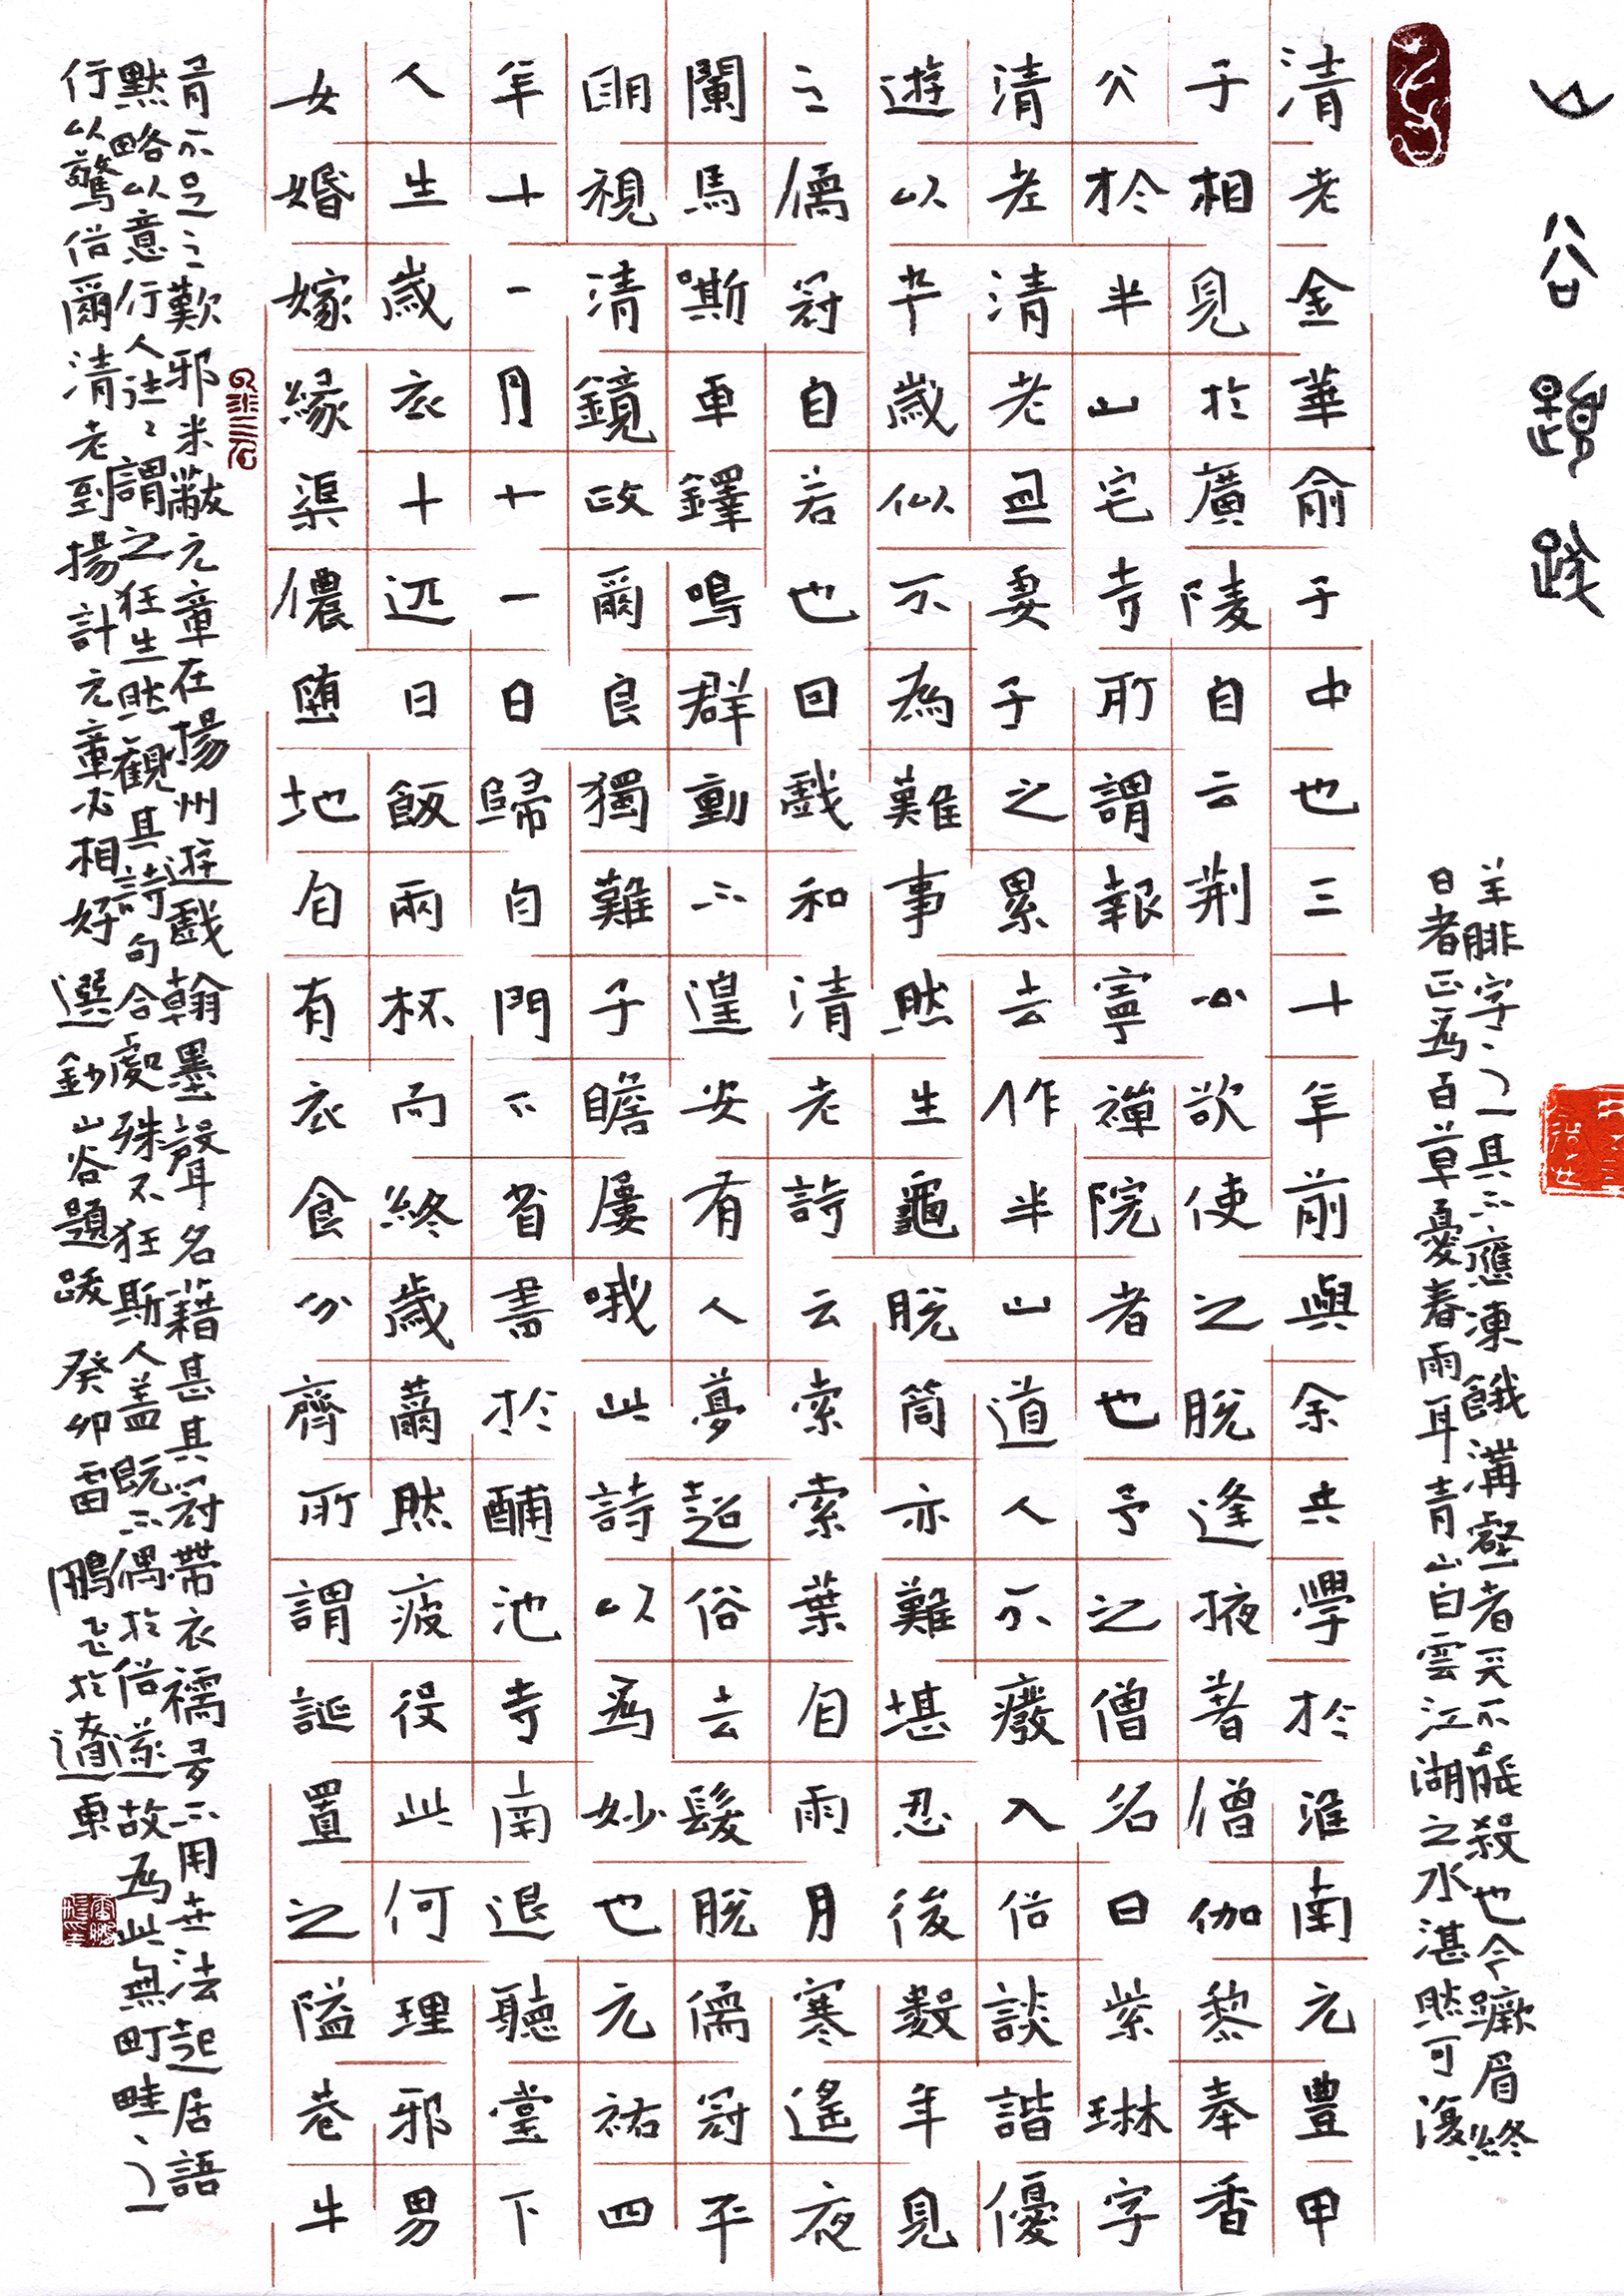 山谷題跋
清老金華俞子中也三十年前與余共學於淮南元豐甲
子相見於廣陵自云荊公欲使之脫逢掖著僧伽黎奉香
火於半山宅寺所謂報寧禪院者也予之僧名曰紫琳字
清老清老妻子之累去作半山道人不廢入俗談諧優
遊以卒歲似不為難事然生龜脫筒亦難堪忍後數年見
之儒冠自若也因戲和清老詩云索索葉自雨月寒遙夜
闌馬嘶車鐸鳴群動不遑安有人夢超俗去髮脫儒冠平
明視清鏡政爾良獨難子瞻屢哦此詩以為妙也元祐四
年十一月十一日歸自門下省書於酺池寺南退聽堂下
人生歲衣十匹日飯兩杯而終歲薾然疲役此何理邪男
女婚嫁緣渠儂墮地自有衣食分齊所謂誕置之隘巷牛
羊腓字之其不應凍餓溝壑者天不能殺也今蹙眉終
日者正為百草憂春雨耳青山白雲江湖之水湛然可復
有不足之歎邪米黻元章在揚州遊戲翰墨聲名籍甚其冠帶衣襦多不用世法起居語
默略以意行人往往謂之狂生然觀其詩句合處殊不狂斯人蓋既不偶於俗遂故為此無町畦之
行以驚俗爾清老到揚計元章必相好 選鈔山谷題跋 癸卯雷鵬飛於遼東